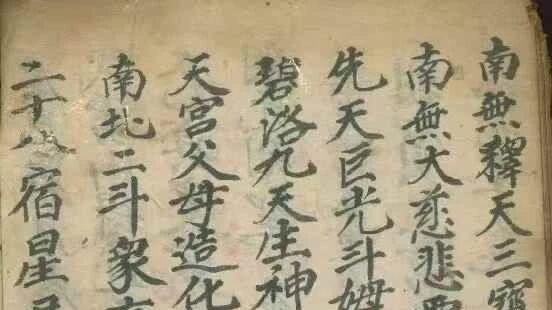 南無釋天三
南無大慈悲
先天巨光斗姆
碧洛九天生神
天宮父母造化
南北二斗衆
二十八宿星